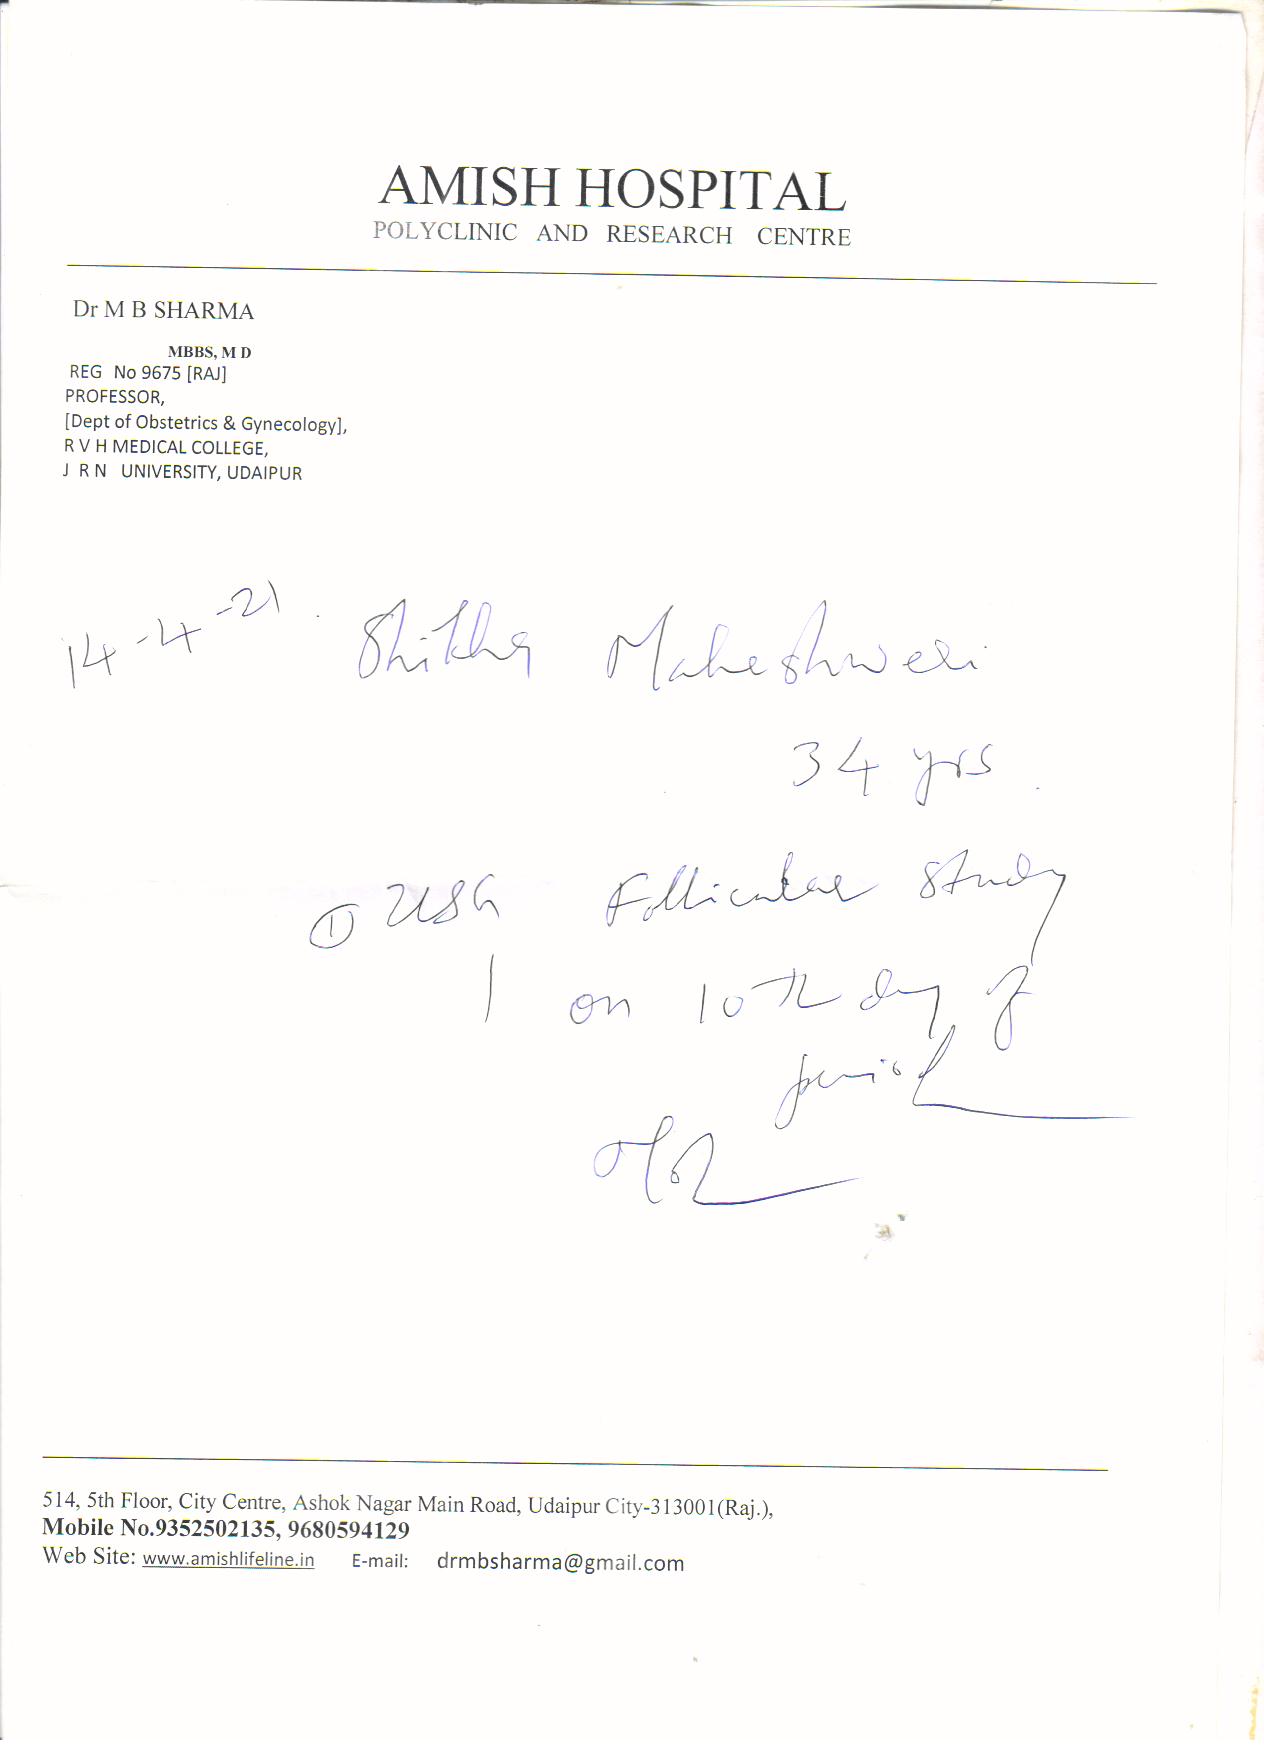 AMISH HOSPITAL
POLYCLINIC AND RESEARCH CENTRE
Dr M B SHARMA
MBBS, M D
REG No 9675 [RAJ]
PROFESSOR,
[Dept of Obstetrics & Gynecology],
R V H MEDICAL COLLEGE,
J R N UNIVERSITY, UDAIPUR
14-4-21 Shikha Maheshweri
34 yrs
① USG Follicular study
on 10th day of
period
514, 5th Floor, City Centre, Ashok Nagar Main Road, Udaipur City-313001(Raj.),
Mobile No.9352502135, 9680594129
Web Site: www.amishlifeline.in E-mail: drmbsharma@gmail.com